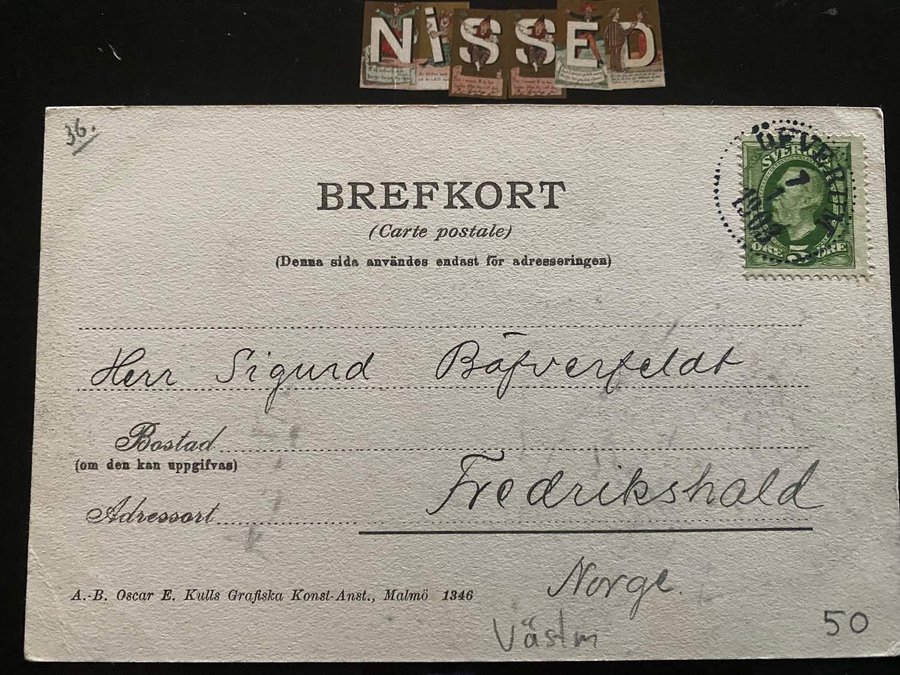 NiSSED
36.
BREFKORT
(Carte postale)
(Denna sida användes endast för adresseringen)
SVERIGE
7
Herr Sigurd Båfverfeldt
Bostad
(om den kan uppgifvas)
Fredrikshald
Adressort
Norge.
A.-B. Oscar E. Kulls Grafiska Konst-Anst., Malmö 1346
Västm
50